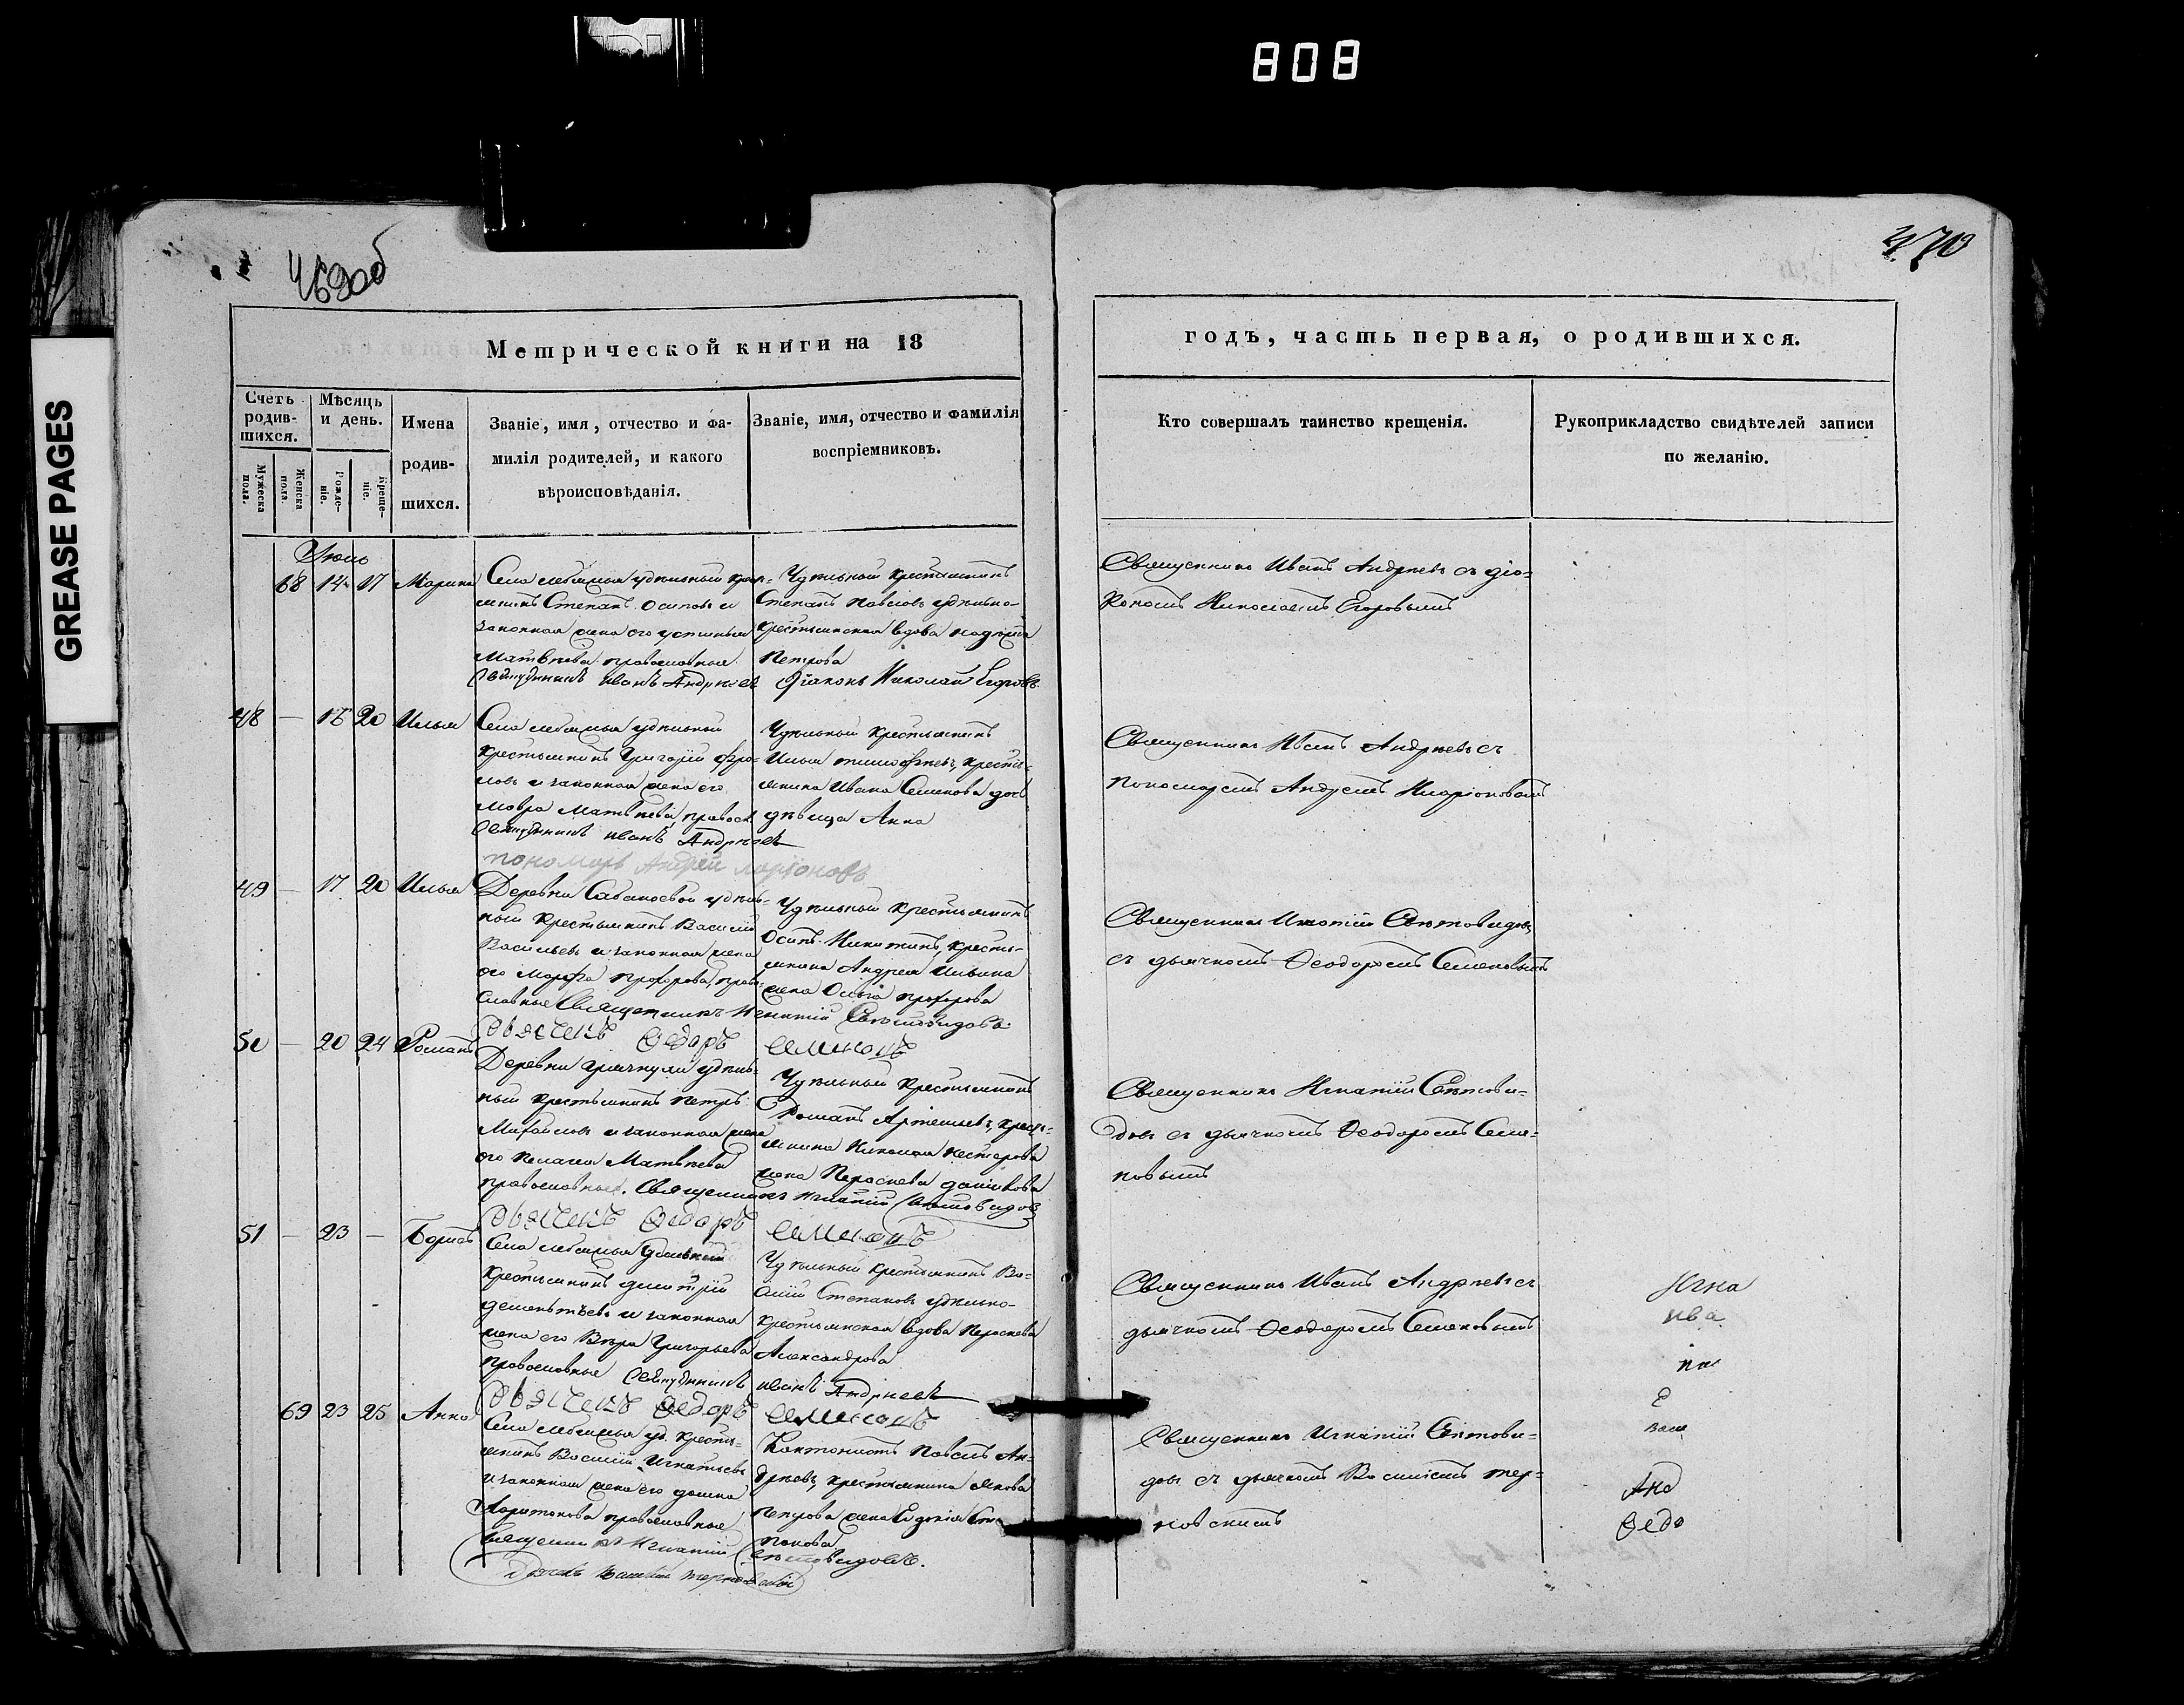 808
GREASE PAGES
469 об
470
Метрической книги на 18
годъ, часть первая, о родившихся.
Счетъ родив-шихся.
Мужеска пола.
Женска пола.
Мѣсяцъ и день.
Рожде-ніе.
Креще-ніе.
Имена
родив-
шихся.
Званіе, имя, отчество и фа-
милія родителей, и какого
вѣроисповѣданія.
Званіе, имя, отчество и фамилія
воспріемниковъ.
Кто совершалъ таинство крещенія.
Рукоприкладство свидѣтелей записи
по желанію.
Июль
68 14 17 Марина
Села удѣльный крестья-
янинъ Степанъ Осиповъ и
законная жена его Устинья
Матвѣева православные
Священникъ иванъ Андреевъ
Удѣльный крестьянинъ
Степанъ Павловъ удѣльно-
крестьянская вдова
Петрова
Діаконъ Николай Егоровъ
Священникъ Иванъ Андреевъ съ діа-
кономъ Николаемъ Егоровымъ
48 — 18 20 Илья
Села удѣльный
крестьянинъ Григорій Фро-
ловъ и законная жена его
Мавра Матвѣева правосл
Священникъ иванъ Андреевъ
пономарь Андрей ларіоновъ
Удѣльный крестьянинъ
Илья тимофѣевъ, кресть-
янина Ивана Семенова дочь
дѣвица Анна
Священникъ Иванъ Андреевъ съ
пономаремъ Андреемъ Иларіоновымъ
49 — 17 20 Илья
Деревни удѣль-
ный крестьянинъ Василий
Васильевъ и законная жена
его Марфа Прохорова, право-
славные Священникъ Игнатій Свѣтовидовъ
дьячекъ Ѳедоръ семеновъ
Удѣльный крестьянинъ
Осипъ Никитинъ, кресть-
янина Андрея Ильина
жена Ольга прохорова
Священникъ Игнатій Свѣтовидовъ
съ дьячкомъ Ѳеодоромъ Семеновымъ
50 — 20 24 Романъ
Деревни удѣль-
ный крестьянинъ Петръ
Михайловъ и законная жена
его Пелагея Матвѣева
православные. Священникъ Игнатій Свѣтовидовъ
дьячекъ Ѳедоръ семеновъ
Удѣльный крестьянинъ
Романъ Артемьевъ, кресть-
янина Николая Нестерова
жена Параскева данилова
Священникъ Игнатій Свѣтови-
довъ съ дьячкомъ Ѳеодоромъ Семе-
новымъ
51 — 23 — Борисъ
Села Удѣльный
крестьянинъ дмитрій
дементьевъ и законная
жена его Вѣра Григорьева
православные Священникъ иванъ Андреевъ
дьячекъ Ѳедоръ семеновъ
Удѣльный крестьянинъ Ва-
силій Степановъ удѣльно-
крестьянская вдова Параскева
Александрова
Священникъ Иванъ Андреевъ съ
дьячкомъ Ѳеодоромъ Семеновымъ
69 23 25 Анна
Села уд. кресть-
янинъ Василій Игнатьевъ
и законная жена его домна
Харитонова православные
Священникъ Игнатій Свѣтовидовъ.
Дьячекъ Василій терновскій
Кантонистъ Павелъ Ан-
дреевъ, крестьянина Якова
Петрова жена Евдокія Сте-
панова
Священникъ Игнатій Свѣтови-
довъ съ дьячкомъ Василіемъ тер-
новскимъ
Игна
ива
па
Е
васи
Анд
Ѳедо